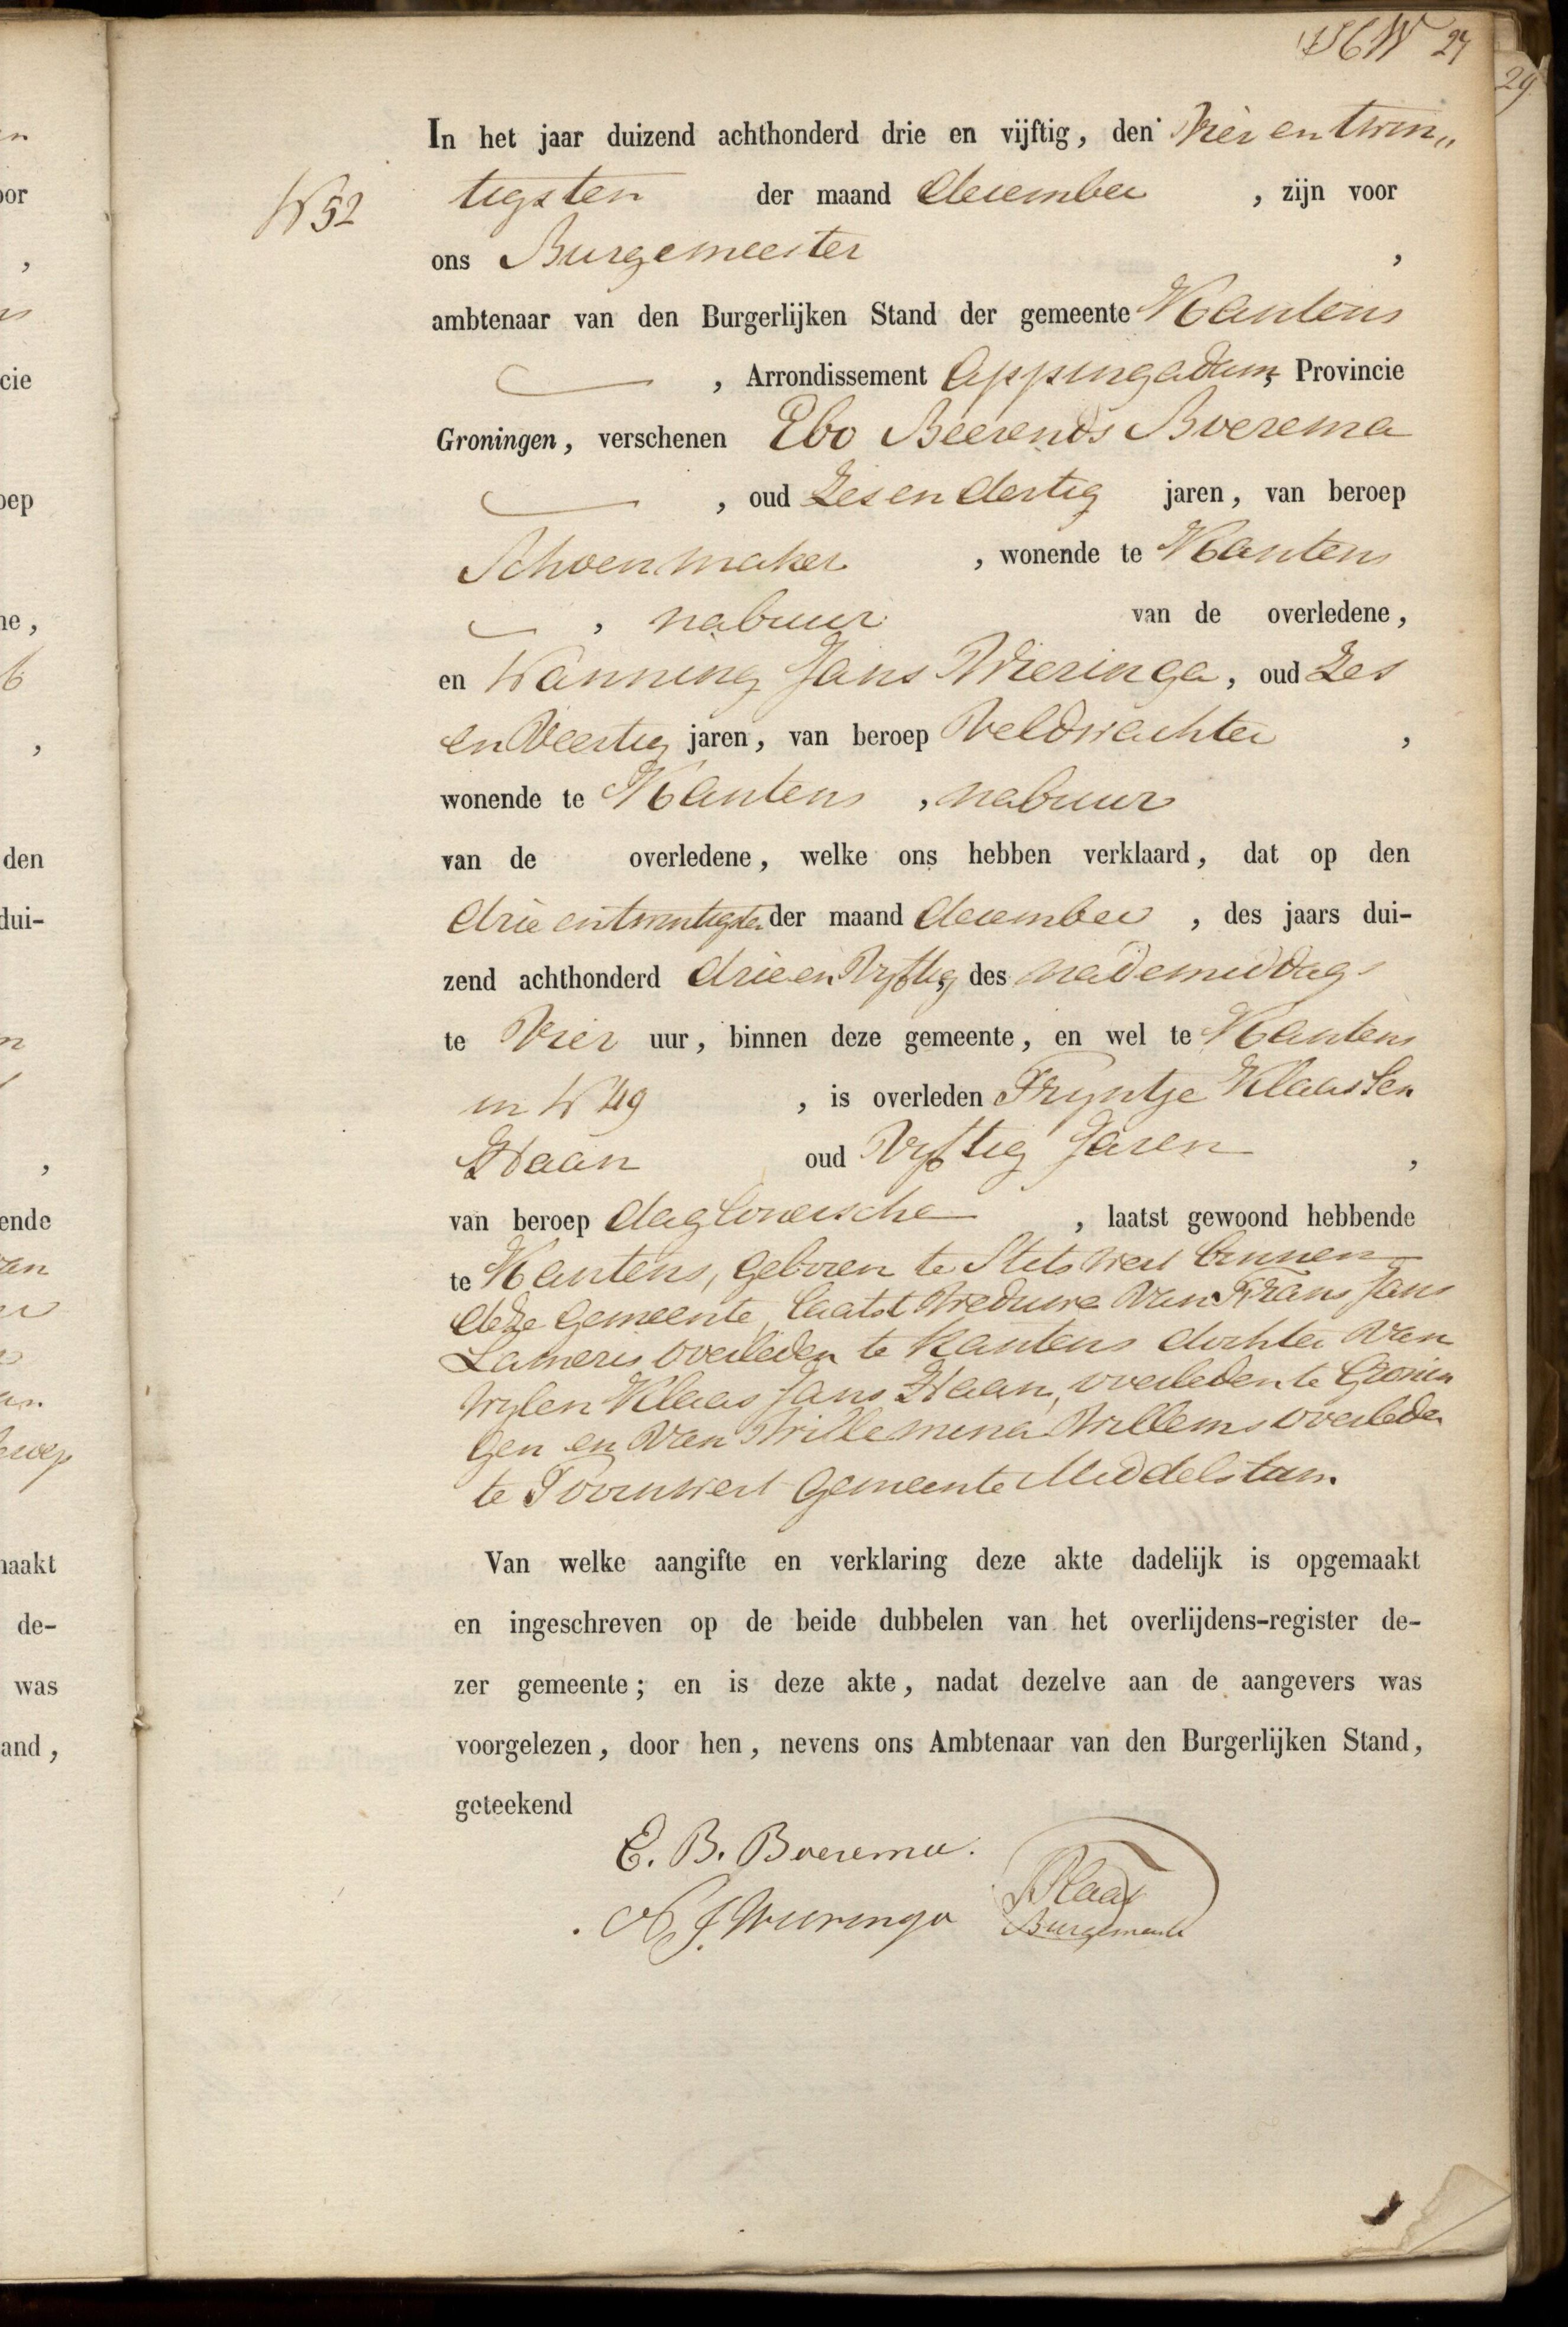 27
29
In het jaar duizend achthonderd drie en vijftig, den Vier en twin„
N 52
tigsten der maand december , zijn voor
ons Burgemeester ,
ambtenaar van den Burgerlijken Stand der gemeente Kantens
, Arrondissement Appingadam, Provincie
Groningen, verschenen Ebo Beerends Boerema
, oud Zes en dertig jaren, van beroep
Schoenmaker , wonende te Kantens
, nabuur van de overledene,
en Nanning Jans Wieringa, oud Zes
en Veertig jaren, van beroep Veldwachter ,
wonende te Kantens , nabuur
van de overledene, welke ons hebben verklaard, dat op den
drie entwintigsten der maand december , des jaars dui-
zend achthonderd drie en Vyftig, des nademiddags
te Vier uur, binnen deze gemeente, en wel te Kantens
in N 49 , is overleden Tryntje Klaassen
Haan oud Vyftig Jaren ,
van beroep daglonersche , laatst gewoond hebbende
te Kantens, geboren te Stitswert binnen
deze gemeente, laatst Weduwe van Frans Jans
Lameris overleden te Kantens dochter van
wylen Klaas Jans Haan, overleden te Gronin
gen en van Willemina Willems overleden
te Toornwert Gemeente Middelstum.
Van welke aangifte en verklaring deze akte dadelijk is opgemaakt
en ingeschreven op de beide dubbelen van het overlijdens-register de-
zer gemeente; en is deze akte, nadat dezelve aan de aangevers was
voorgelezen, door hen, nevens ons Ambtenaar van den Burgerlijken Stand,
geteekend
E. B. Boerema.
N. J. Wieringa
Burgemeester